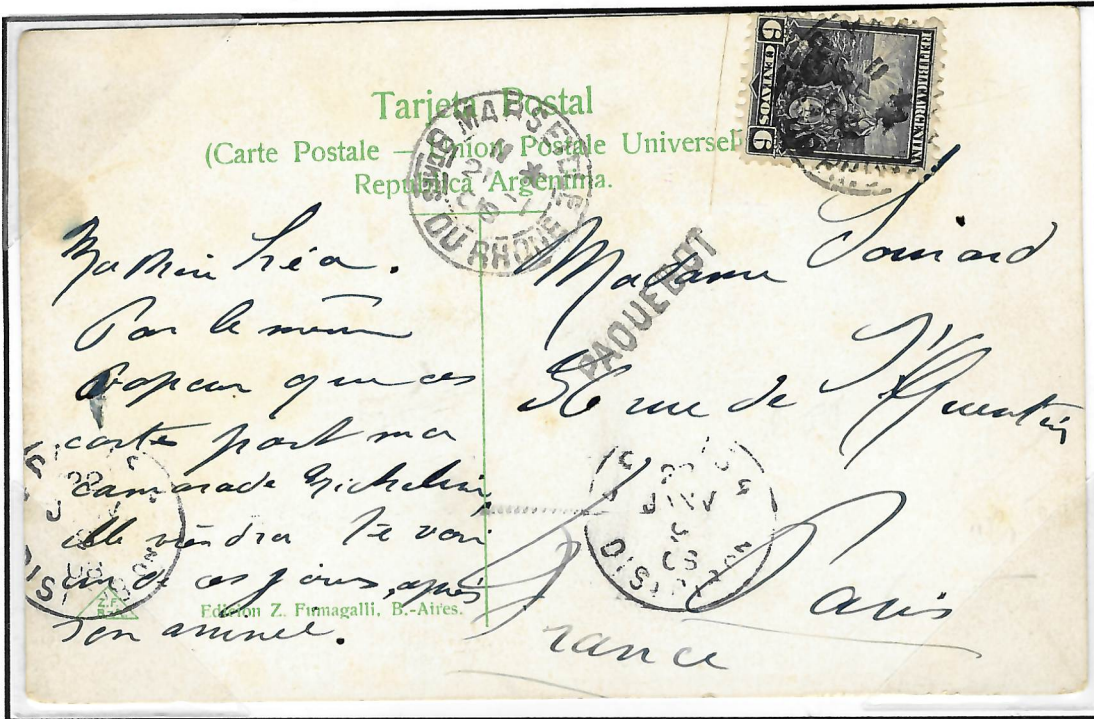 Tarjeta Postal
(Carte Postale — Union Postale Universel
Republica Argentina.
REPUBLICA ARGENTINA
6 CENTAVOS 6
MARSEILLE
BCHES DU RHONE
PAQUEBOT
Ma chère Léa.
Par le même
vapeur que ces
carte part ma
camarade Micheline,
elle viendra te voir
un de ces jours, après
son arrivé.
Madame
56 rue de St Quentin
Paris
France
DISTRIBUTION
Z.F.
B.A.
Edicion Z. Fumagalli, B.-Aires.